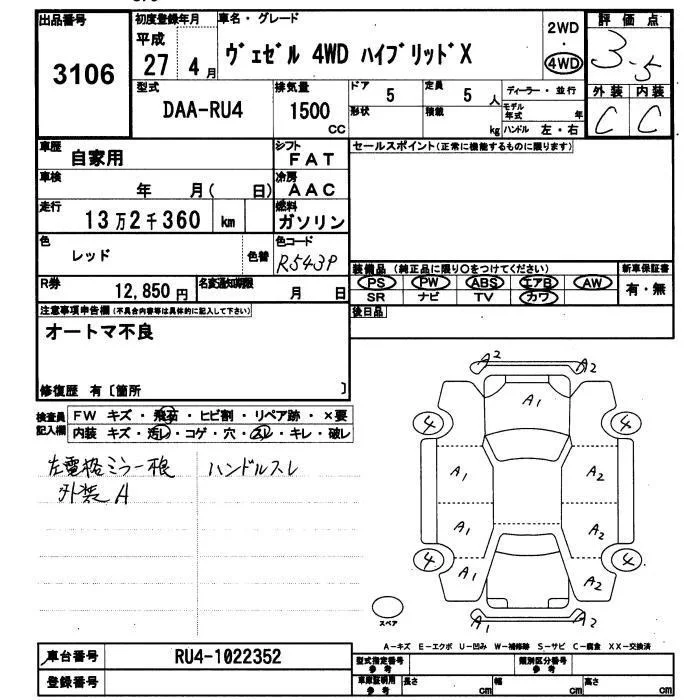 出品番号 初度登録年月 車名・グレード 評価点
3106
平成 27 4月
ヴェゼル 4WD ハイブリッドX
2WD ・ 4WD
3.5
型式 排気量 ドア 定員 ディーラー・並行 外装 内装
DAA-RU4 1500 CC 5 5 人 C C
形状 積載 kg モデル年式 年
ハンドル 左・右
車歴 自家用 シフト FAT セールスポイント(正常に機能するものに限ります)
車検 年 月( 日) 冷房 AAC
走行 13万2千360 km 燃料 ガソリン
色 レッド 色替 色コード R543P
装備品 (純正品に限り〇をつけてください) 新車保証書
PS PW ABS エアB AW 有・無
SR ナビ TV カワ
R券 12,850円 名変通知期限 月 日
後日品
注意事項申告欄(不具合内容等は具体的に記入して下さい)
オートマ不良
修復歴 有〔箇所 〕
検査員記入欄 FW キズ・飛石・ヒビ割・リペア跡・×要
内装 キズ・汚レ・コゲ・穴・スレ・キレ・破レ
左電格ミラー不良 ハンドルスレ
外装 A
A2 A2
A1
4 4
A1 A2
A1 A2
4 4
A1 A2
A1 A2
スペア
A-キズ E-エクボ U-凹み W-補修跡 S-サビ C-腐食 XX-交換済
車台番号 RU4-1022352
型式指定番号参考 類別区分番号参考
登録番号
車庫証明用参考 長さ cm 幅 cm 高さ cm